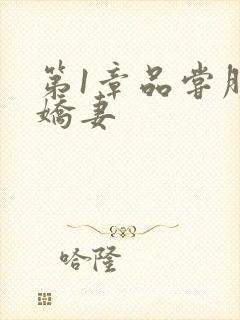 第1章品尝朋
娇妻
哈隆